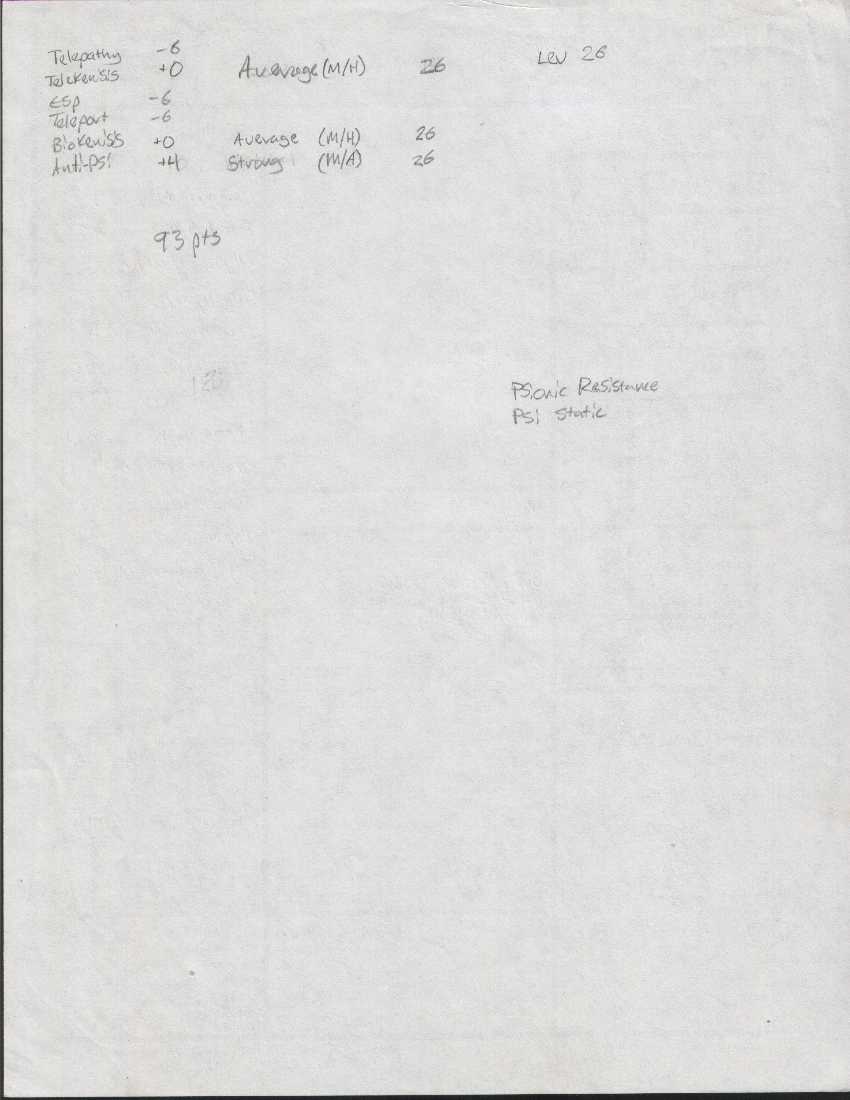 Telepathy -6
Telekensis +0 Average (M/H) 26 Lev 26
ESP -6
Teleport -6
Biokensis +0 Average (M/H) 26
Anti-Psi +4 Strong (M/A) 26
93 pts
Psionic Resistance
Psi Static